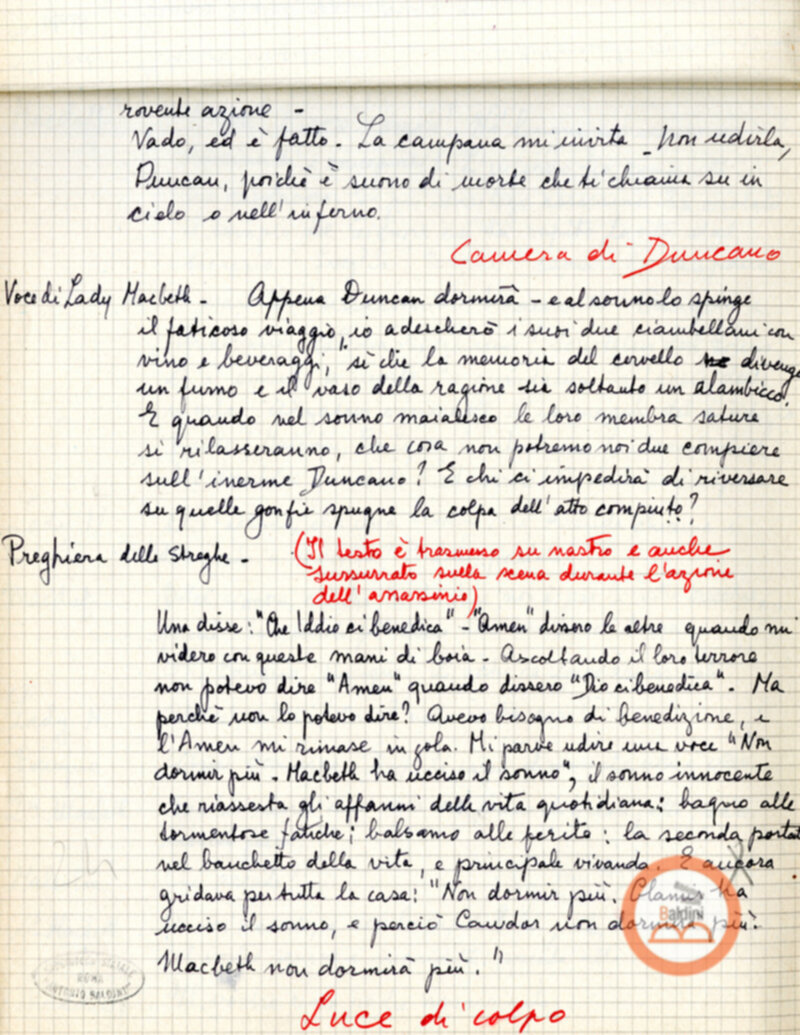 rovente azione -
Vado, ed è fatto - La campana mi invita - Non udirla,
Duncan, poichè è suono di morte che ti chiama su in
cielo o nell'inferno.
Camera di Duncano
Voce di Lady Macbeth - Appena Duncan dormirà - e al sonno lo spinge
il faticoso viaggio, io adescherò i suoi due ciambellani con
vino e beveraggi, sì che la memoria del cervello divenga
un fumo e il vaso della ragione sia soltanto un alambicco.
E quando nel sonno maialesco le loro membra sature
si rilasseranno, che cosa non potremo noi due compiere
sull'inerme Duncano? E chi ci impedirà di riversare
su quelle gonfie spugne la colpa dell'atto compiuto?
Preghiera delle streghe - (Il testo è trasmesso su nastro e anche
sussurrato sulla scena durante l'azione
dell'assassinio)
Una disse: "Che Iddio ci benedica" - "Amen" dissero le altre quando mi
videro con queste mani di boia - Ascoltando il loro terrore
non potevo dire "Amen" quando dissero "Dio ci benedica". Ma
perchè non lo potevo dire? Avevo bisogno di benedizione, e
l'Amen mi rimase in gola. Mi parve udire una voce "Non
dormir più - Macbeth ha ucciso il sonno", il sonno innocente
che riassesta gli affanni della vita quotidiana: bagno alle
tormentose fatiche; balsamo alle ferite: la seconda portata
nel banchetto della vita, e principale vivanda. E ancora
gridava per tutta la casa: "Non dormir più. Glamis ha
ucciso il sonno, e perciò Cawdor non dormirà più.
Macbeth non dormirà più."
Luce di colpo
24
Baldini
ROMA
ANTONIO BALDINI